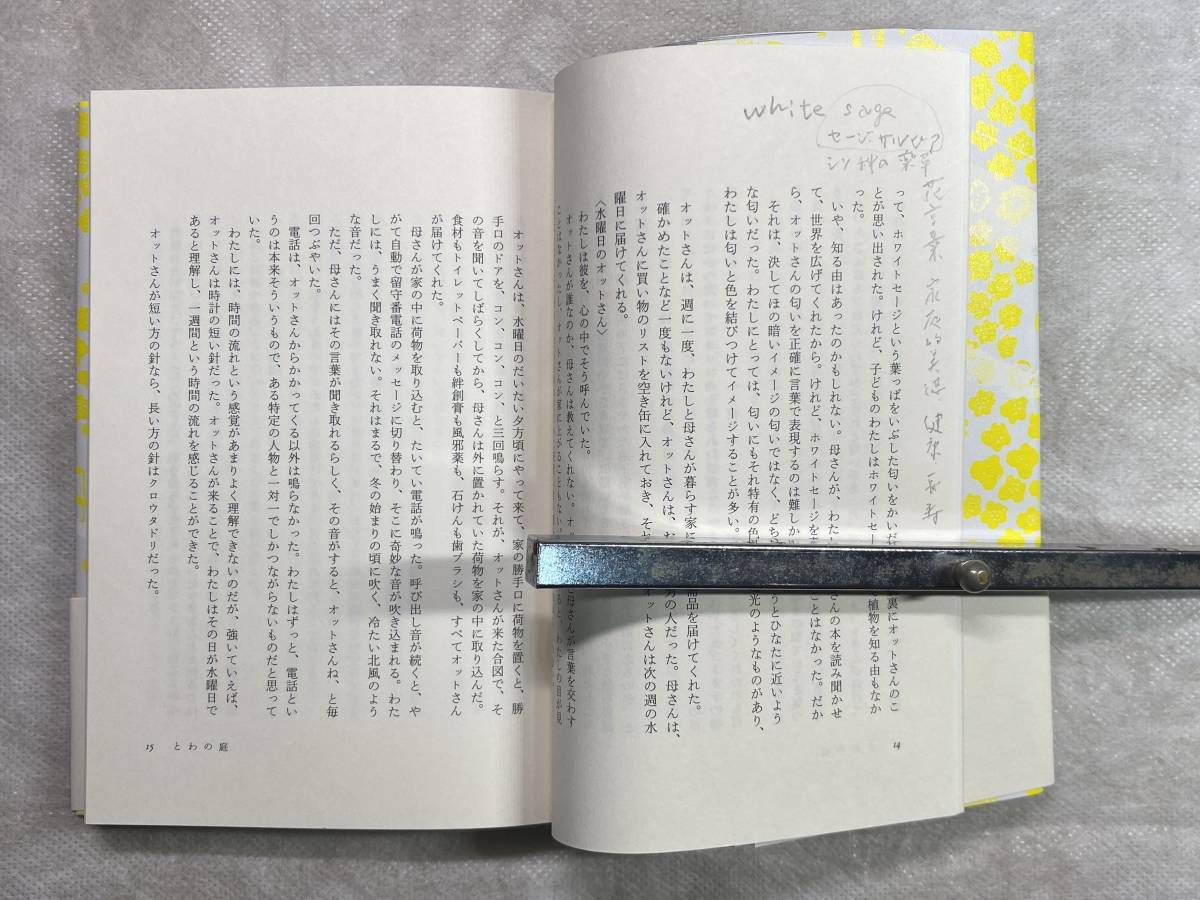 white sage
セージ、サルビア
シソ科の薬草
花言葉 家庭的美徳 健康 長寿
って、ホワイトセージという葉っぱをいぶした匂いをかいだ
裏にオットさんのこ
とが思い出された。けれど、子どものわたしはホワイトセー
植物を知る由もなか
った。
いや、知る由はあったのかもしれない。母さんが、わた
さんの本を読み聞かせ
て、世界を広げてくれたから。けれど、ホワイトセージを
ことはなかった。だか
ら、オットさんの匂いを正確に言葉で表現するのは難しか
それは、決してほの暗いイメージの匂いではなく、どち
うとひなたに近いよう
な匂いだった。わたしにとっては、匂いにもそれ特有の色
光のようなものがあり、
わたしは匂いと色を結びつけてイメージすることが多い。
オットさんは、週に一度、わたしと母さんが暮らす家に
品を届けてくれた。
確かめたことなど一度もないけれど、オットさんは、お
男の人だった。母さんは、
オットさんに買い物のリストを空き缶に入れておき、そ
オットさんは次の週の水
曜日に届けてくれる。
〈水曜日のオットさん〉
わたしは彼を、心の中でそう呼んでいた。
オットさんが誰なのか、母さんは教えてくれない。オッ
と母さんが言葉を交わす
14
オットさんは、水曜日のだいたい夕方頃にやって来て、家の勝手口に荷物を置くと、勝
手口のドアを、コン、コン、コン、と三回鳴らす。それが、オットさんが来た合図で、そ
の音を聞いてしばらくしてから、母さんは外に置かれていた荷物を家の中に取り込んだ。
食材もトイレットペーパーも絆創膏も風邪薬も、石けんも歯ブラシも、すべてオットさん
が届けてくれた。
母さんが家の中に荷物を取り込むと、たいてい電話が鳴った。呼び出し音が続くと、や
がて自動で留守番電話のメッセージに切り替わり、そこに奇妙な音が吹き込まれる。わた
しには、うまく聞き取れない。それはまるで、冬の始まりの頃に吹く、冷たい北風のよう
な音だった。
ただ、母さんにはその言葉が聞き取れるらしく、その音がすると、オットさんね、と毎
回つぶやいた。
電話は、オットさんからかかってくる以外は鳴らなかった。わたしはずっと、電話とい
うのは本来そういうもので、ある特定の人物と一対一でしかつながらないものだと思って
いた。
わたしには、時間の流れという感覚があまりよく理解できないのだが、強いていえば、
オットさんは時計の短い針だった。オットさんが来ることで、わたしはその日が水曜日で
あると理解し、一週間という時間の流れを感じることができた。
オットさんが短い方の針なら、長い方の針はクロウタドリだった。
15 とわの庭